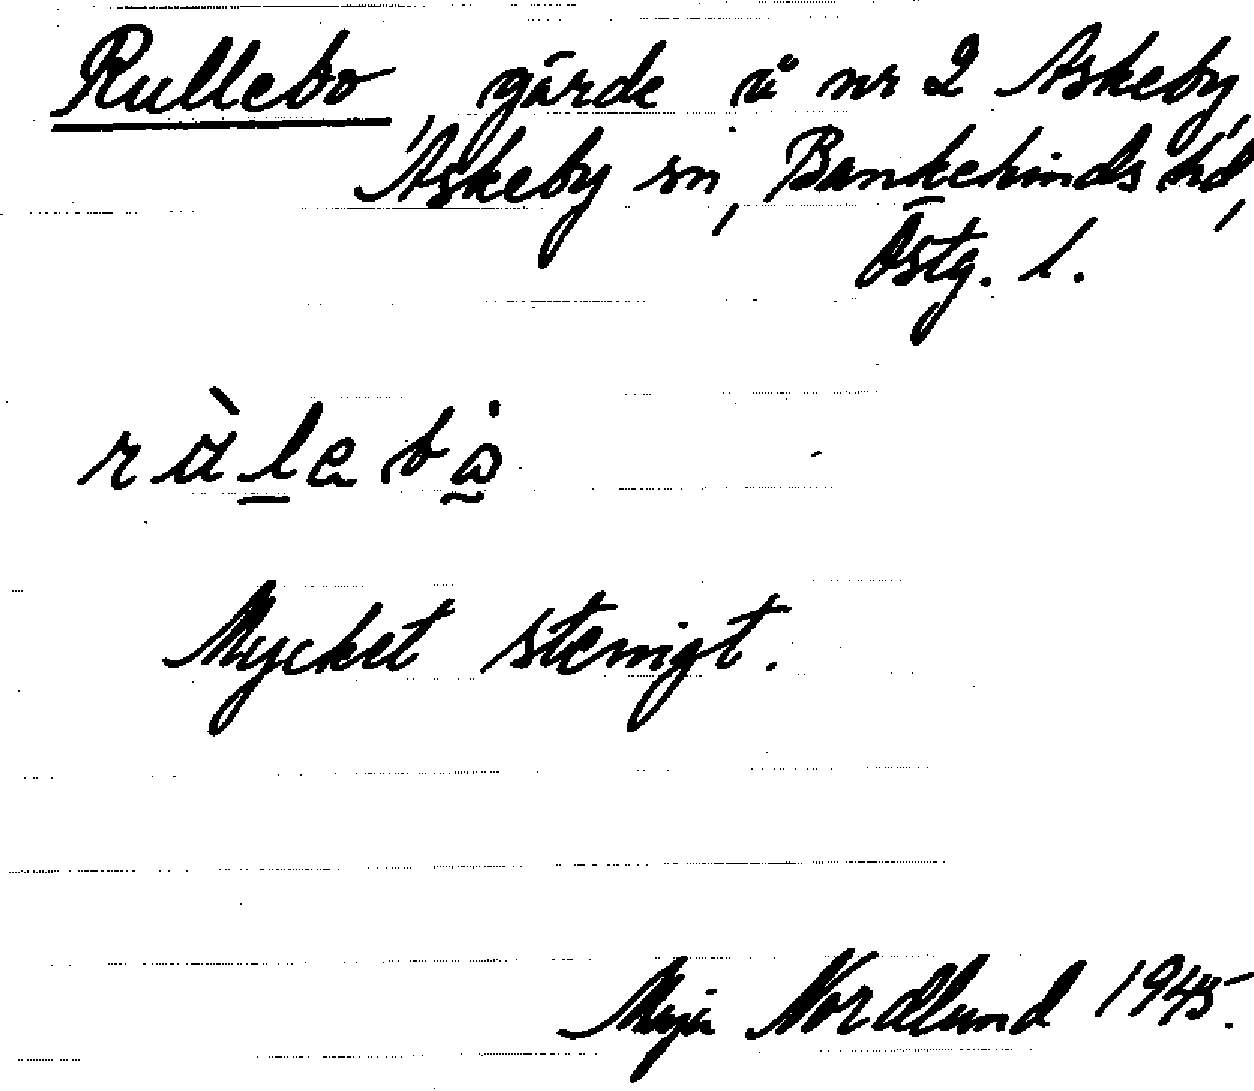 Rullebo gärde å nr 2 Askeby,
Askeby sn, Bankekinds hd,
Östg. l.
Mycket stenigt.
Maja Nordlund 1945.